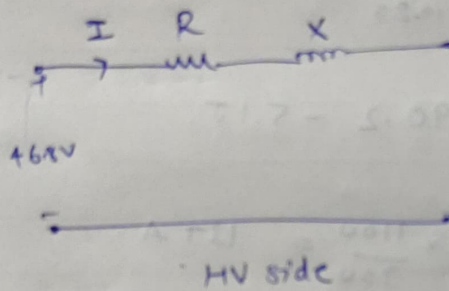 I R X
+
468V
-
HV side